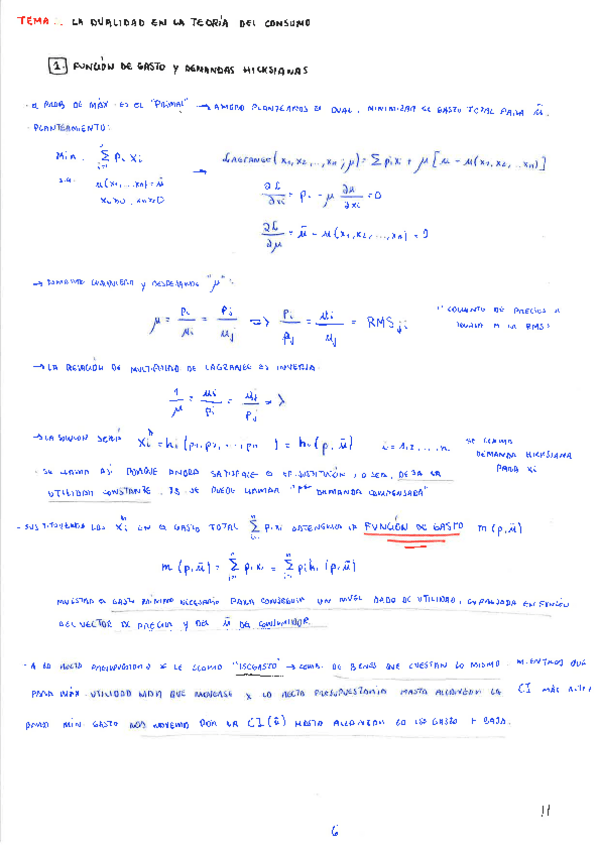 TEMA: LA DUALIDAD EN LA TEORÍA DEL CONSUMO
1. FUNCIÓN DE GASTO Y DEMANDAS HICKSIANAS
· EL PROB DE MÁX ES EL "PRIMAL" → AHORA PLANTEAMOS EL DUAL, MINIMIZAR EL GASTO TOTAL PARA ū.
· PLANTEAMIENTO:
Min. Σ pi xi → LAGRANGE(x1, x2, ..., xn; μ) = Σ pi xi + μ [ū - u(x1, x2, ... xn)]
s.a. u(x1, ... xn) = ū
∂L/∂xi = pi - μ ∂u/∂xi = 0
∂L/∂μ = ū - u(x1, x2, ..., xn) = 0
→ Y DESPEJANDO "μ":
μ = pi/ui = pj/uj => pi/pj = ui/uj = RMSji
"COCIENTE DE PRECIOS
→ LA RELACIÓN DE MULTIPLICAD DE LAGRANGE ES INVERSA:
1/μ = ui/pi = uj/pj = λ
→ LA SOLUCIÓN SERÍA xi^h = hi(p1, p2, ..., pn ) = hi(p, ū) i = 1, 2, ... n. SE LLAMA
DEMANDA HICKSIANA
PARA xi
· SE LLAMA ASÍ PORQUE AHORA SATISFACE EL EF. SUSTITUCIÓN, O SEA, DEJA LA
UTILIDAD CONSTANTE. SE PUEDE LLAMAR DEMANDA COMPENSADA"
- SUSTITUYENDO LAS xi^h EN EL GASTO TOTAL Σ pi xi OBTENEMOS LA FUNCIÓN DE GASTO m(p, ū)
m(p, ū) = Σ pi xi = Σ pi hi (p, ū)
MUESTRA EL GASTO MÍNIMO NECESARIO PARA CONSEGUIR UN NIVEL DADO DE UTILIDAD, EXPRESADA EN FUNCIÓN
DEL VECTOR DE PRECIOS Y DEL ū DEL CONSUMIDOR.
· A LA RECTA PRESUPUESTARIA SE LE LLAMA "ISOGASTO" → COMB. DE BIENES QUE CUESTAN LO MISMO. MIENTRAS QUE
PARA MÁX UTILIDAD HABÍA QUE MOVERSE X LA RECTA PRESUPUESTARIA HASTA ALCANZAR LA CI MÁS ALTA,
PARA MIN GASTO NOS MOVEMOS POR LA CI(ū) HASTA ALCANZAR EL ISO GASTO + BAJA.
6